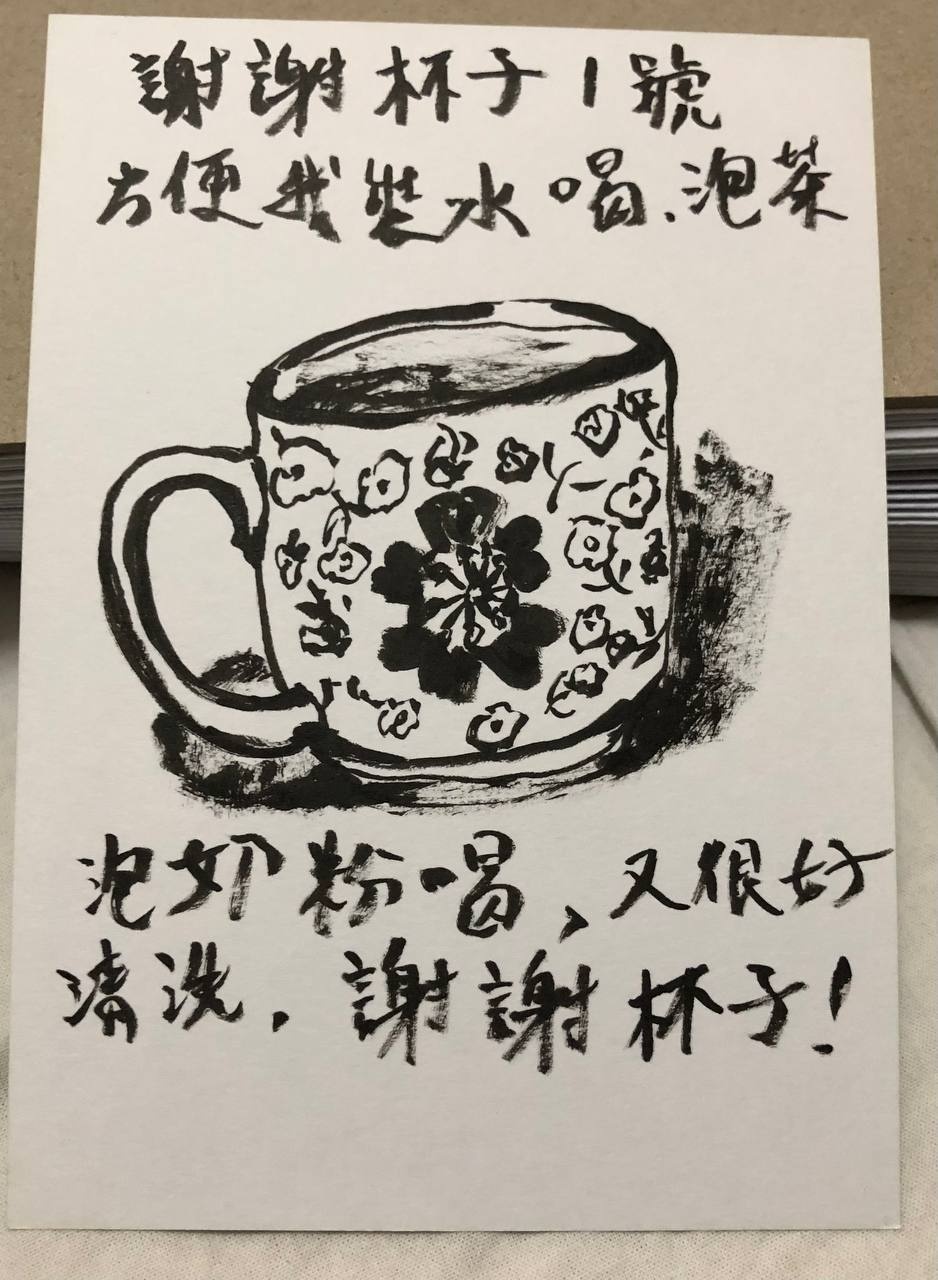 謝謝杯子1號
方便我裝水喝、泡茶
泡奶粉喝,又很好
清洗,謝謝杯子!